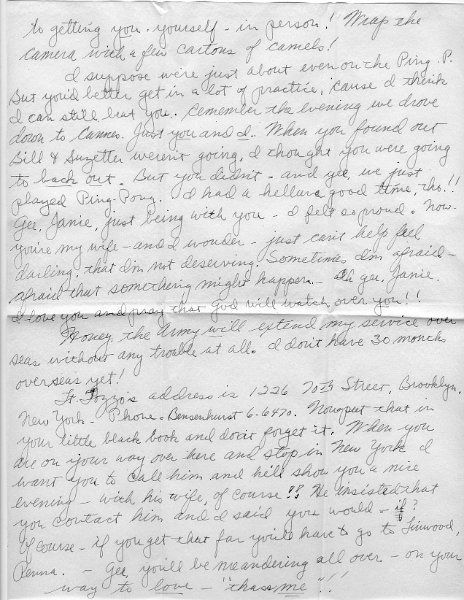 to getting you - yourself - in person! Wrap the
camera with a few cartons of camels!
I suppose we're just about even on the Ping. P.
But you'd better get in a lot of practice, 'cause I think
I can still beat you. Remember the evening we drove
down to Cannes. Just you and I. When you found out
Bill & Suzette weren't going, I thought you were going
to back out. But you didn't - and gee, we just
played Ping-Pong. I had a helluva good time, tho!!
Gee, Janie, just being with you - I felt so proud. Now-
you're my wife - and I wonder - just can't help feel
darling, that I'm not deserving. Sometimes I'm afraid -
afraid that something might happen. - Ah gee, Janie.
I love you and pray that God will watch over you!!
Honey, the Army will extend my service over
seas without any trouble at all. I don't have 30 months
overseas yet!
Lt. Pozzo's address is 1226 70th Street, Brooklyn,
New York - Phone - Bensenhurst 6-6470. Now put that in
your little black book and don't forget it. When you
are on your way over here and stop in New York I
want you to call him and he'll show you a nice
evening - with his wife, of course!! He insisted that
you contact him and I said you would - if?
Of course - if you get that far you'll have to go to Linwood,
Penna. - Gee, you'll be meandering all over - on your
way to love - "thass me"!!